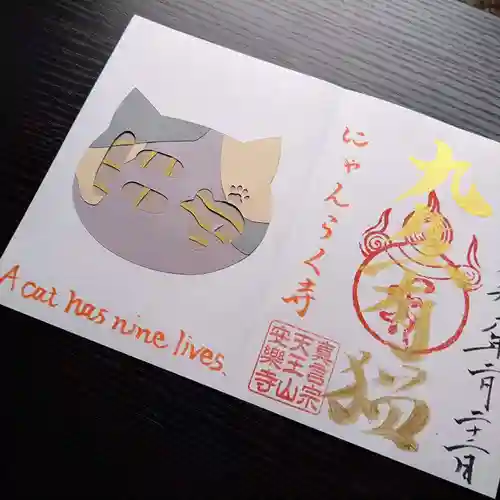 A cat has nine lives.
年二月二十二日
九
猫
にゃんらく寺
真言宗
天王山
安樂寺